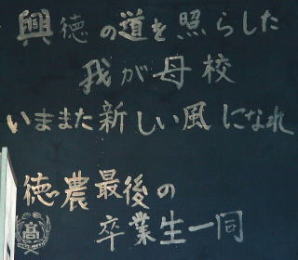 興徳の道を照らした
我が母校
いままた新しい風になれ
徳農最後の
卒業生一同
高